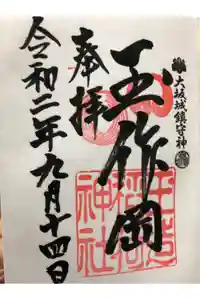 大坂城鎮守神
玉作岡
奉拝
令和二年九月十四日
玉造稲荷神社